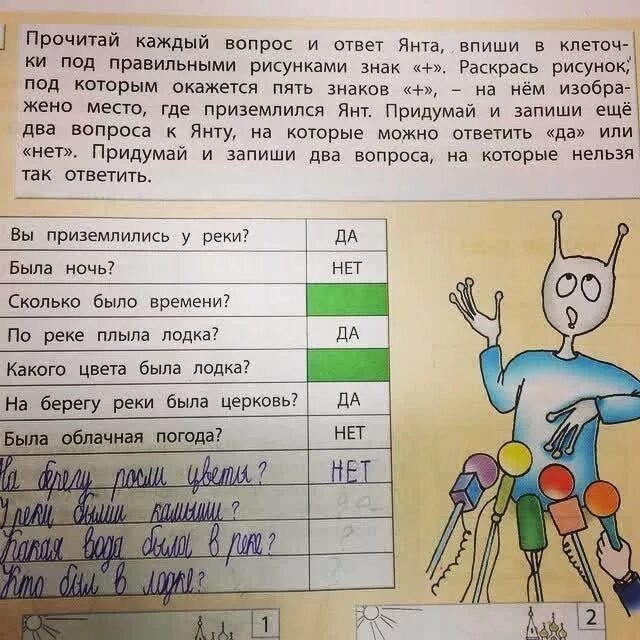 Прочитай каждый вопрос и ответ Янта, впиши в клеточ-
ки под правильными рисунками знак «+». Раскрась рисунок,
под которым окажется пять знаков «+», – на нём изобра-
жено место, где приземлился Янт. Придумай и запиши ещё
два вопроса к Янту, на которые можно ответить «да» или
«нет». Придумай и запиши два вопроса, на которые нельзя
так ответить.
Вы приземлились у реки? ДА
Была ночь? НЕТ
Сколько было времени?
По реке плыла лодка? ДА
Какого цвета была лодка?
На берегу реки была церковь? ДА
Была облачная погода? НЕТ
На берегу росли цветы? НЕТ
У реки были камыши?
Какая вода была в реке? ?
Кто был в лодке? ?
1 2